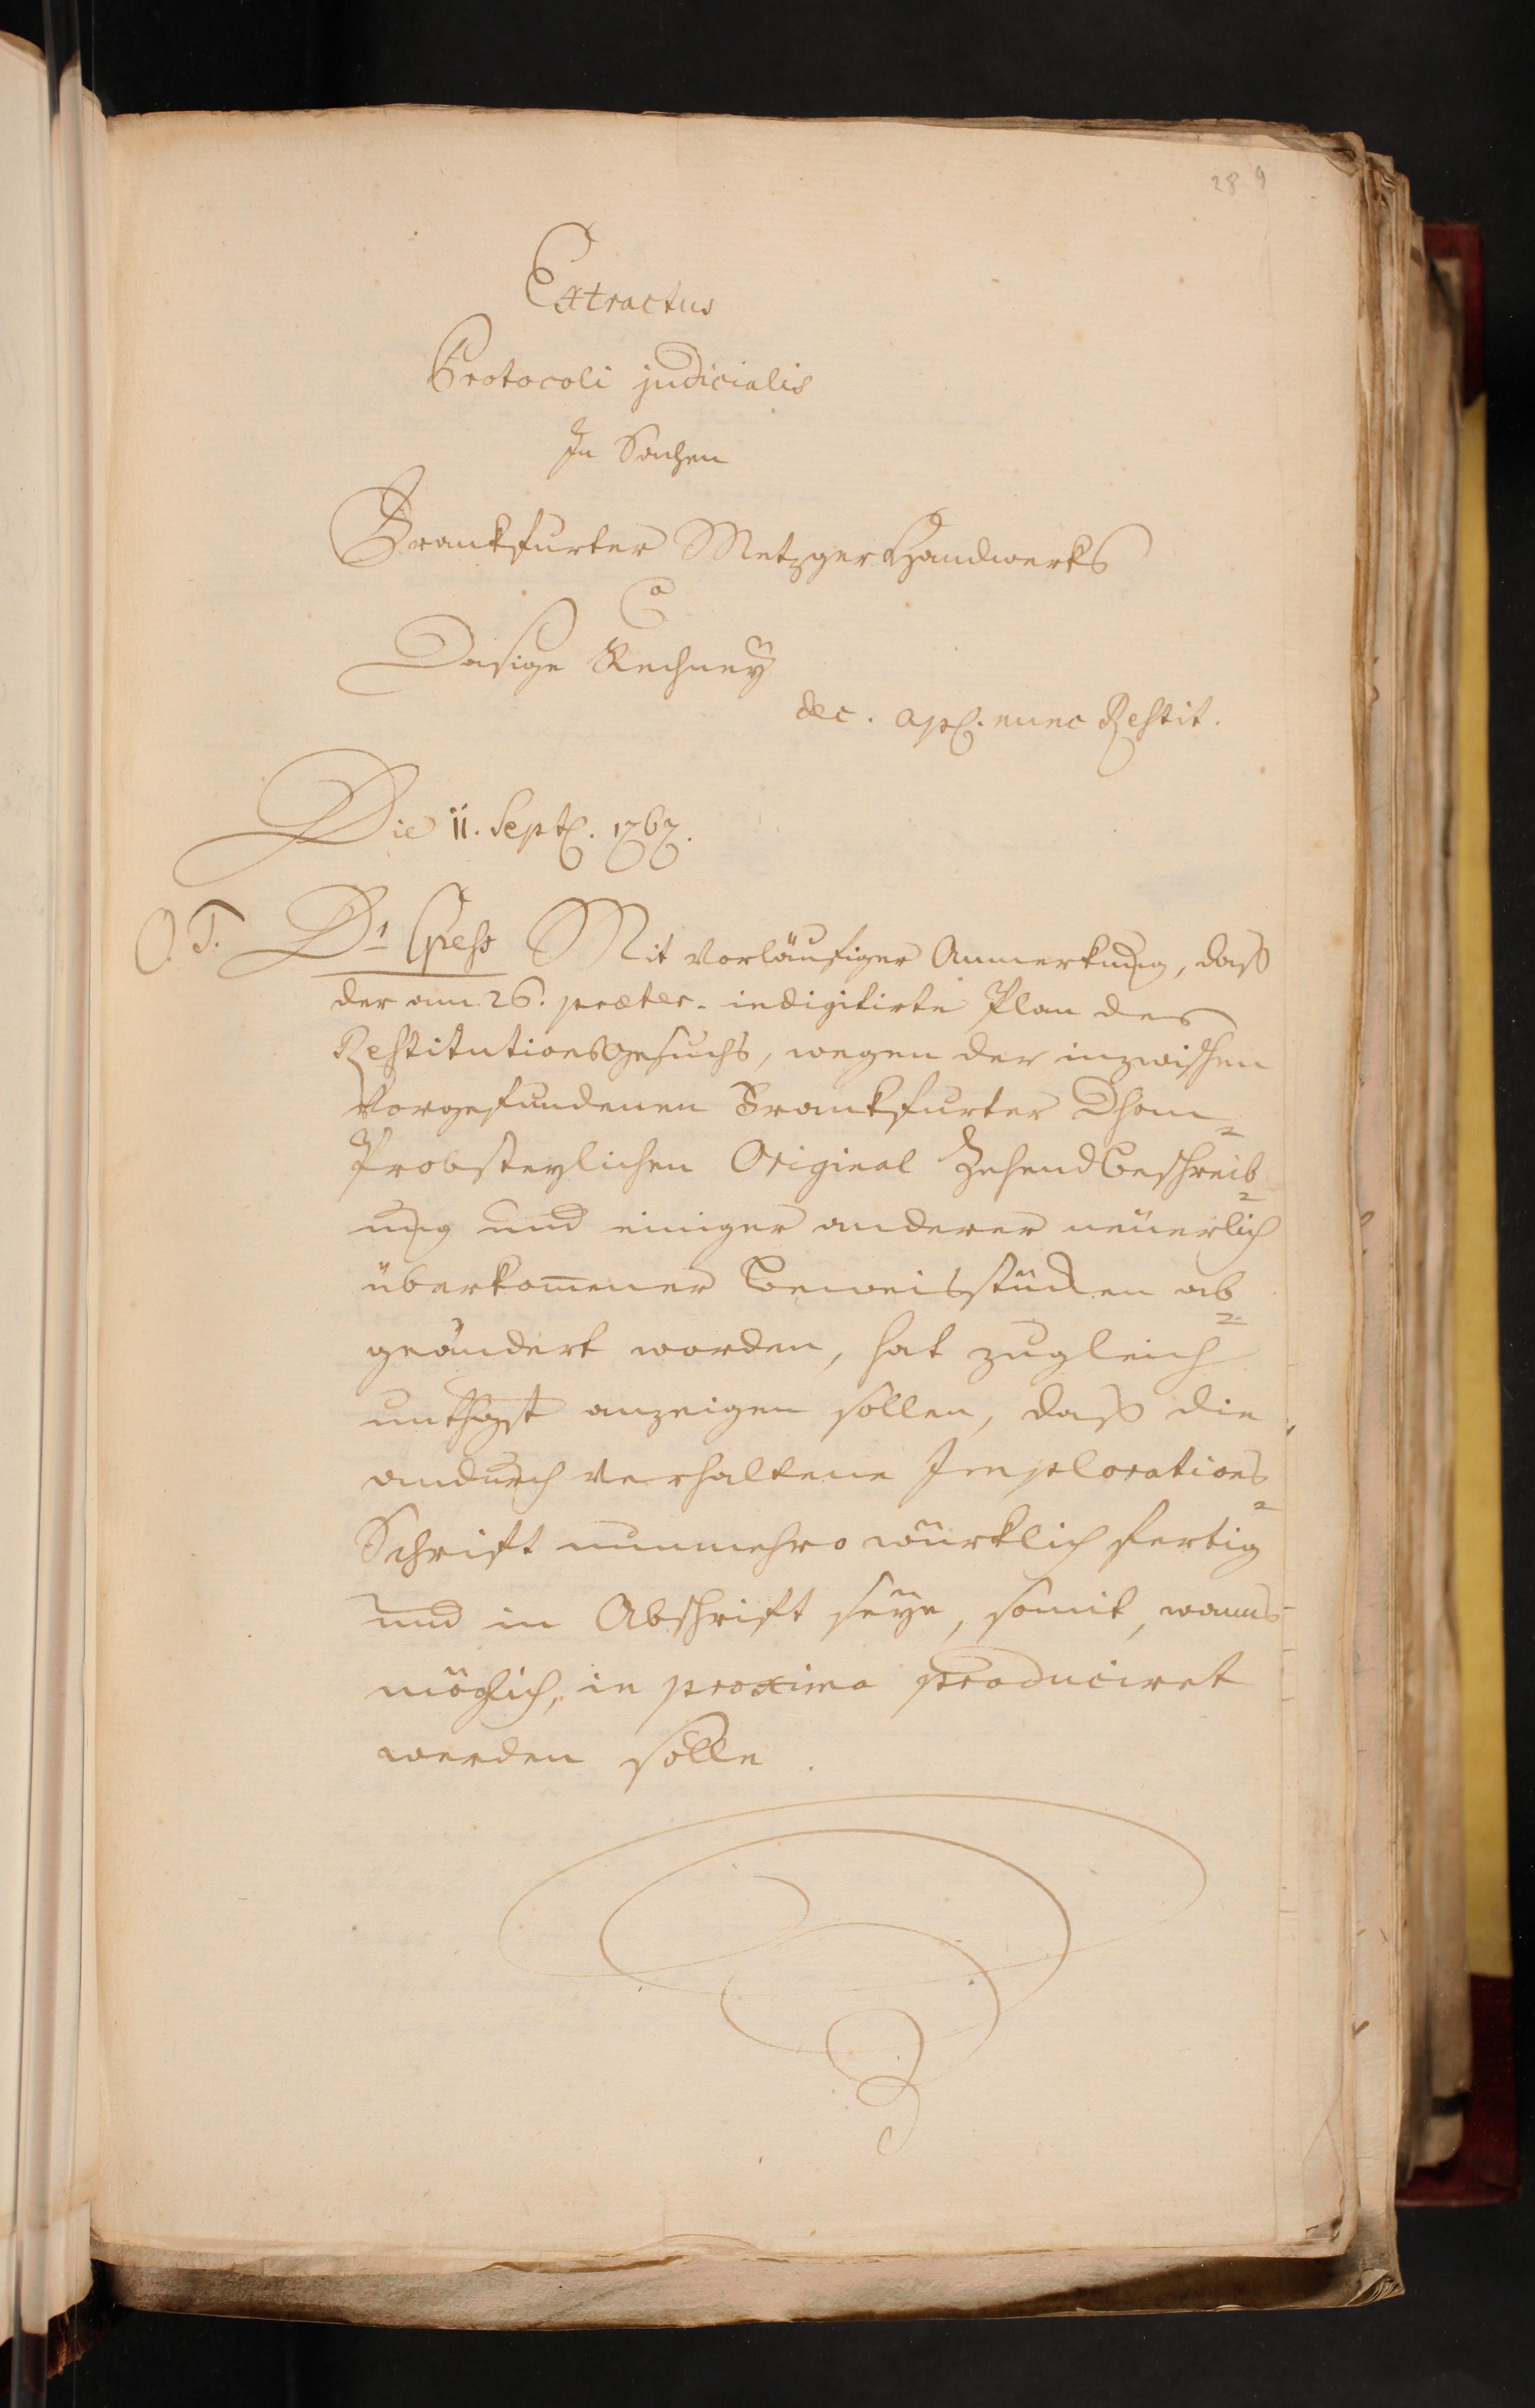 289
Extractus
Protocoli judicialis
In Sachen
Franckfurter Metzger Handwercks
Ca
Dasige Rechney
dec. apl. nunc Restit.
Die 11. Sept. 1767.
O. T. Dr. Hess Mit vorläufiger Anmerkung, daß
der am 26. praeter. indigitirte Plan des
Restitutionsgesuchs, wegen der inzwischen
vorgefundenen Franckfurter Dhom-
Probsteylichen Original Zehend Beschreib-
ung und einiger anderer neuerlich
überkom̄ener Beweisstücken ab-
geändert worden, hat zugleich
unthgst anzeigen sollen, daß die
andurch verhaltene Implorations-
Schrift nunmehro würklich fertig
und in Abschrift seye, somit, wanns
möglich, in proxima produciret
werden solle.